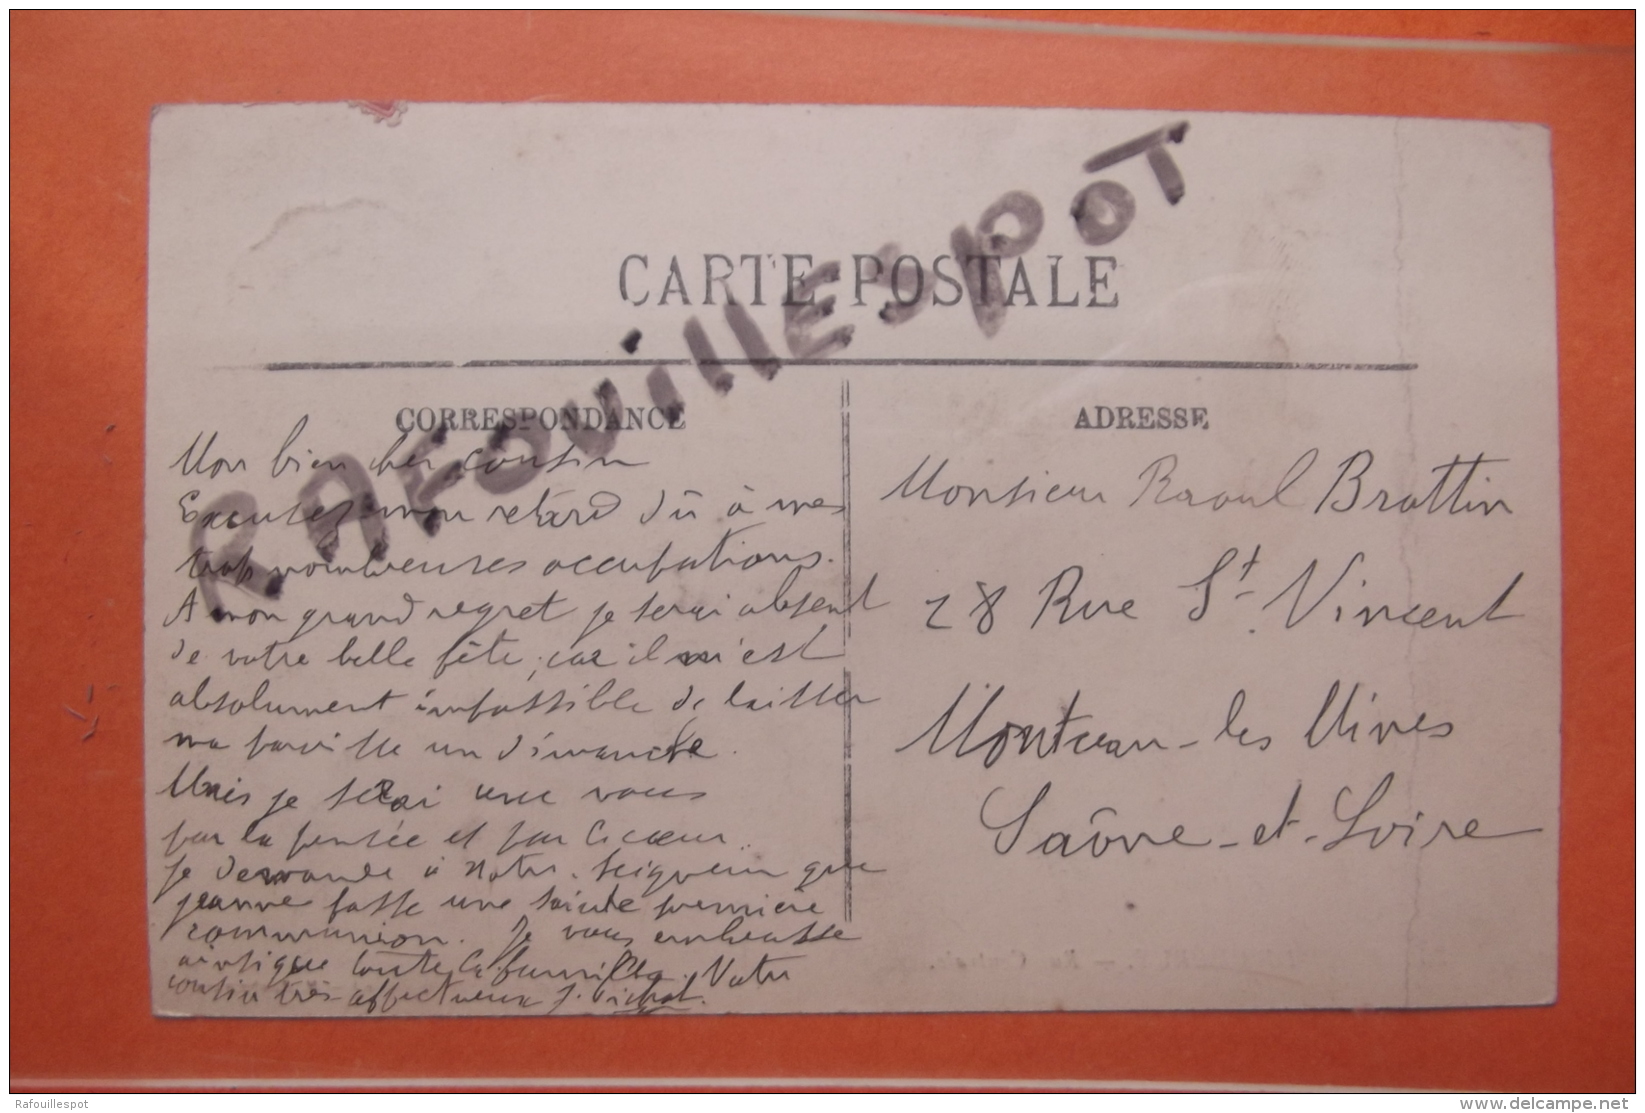 CARTE POSTALE
RAFOUILLESPOT
CORRESPONDANCE
Mon bien cher cousin
Excusez mon retard dû à mes
trop nombreuses occupations.
A mon grand regret je serai absent
de votre belle fête, car il m'est
absolument impossible de laisser
ma paroisse un dimanche.
Mais je serai avec vous
par la pensée et par le coeur.
Je demande à Notre-Seigneur que
Jeanne fasse une sainte première
communion. Je vous embrasse
ainsi que toute la famille. Votre
cousin très affectueux J.
ADRESSE
Monsieur Raoul Brottin
28 Rue St. Vincent
Montceau-les Mines
Saône-et-Loire
Rafouillespot
delcampe.net